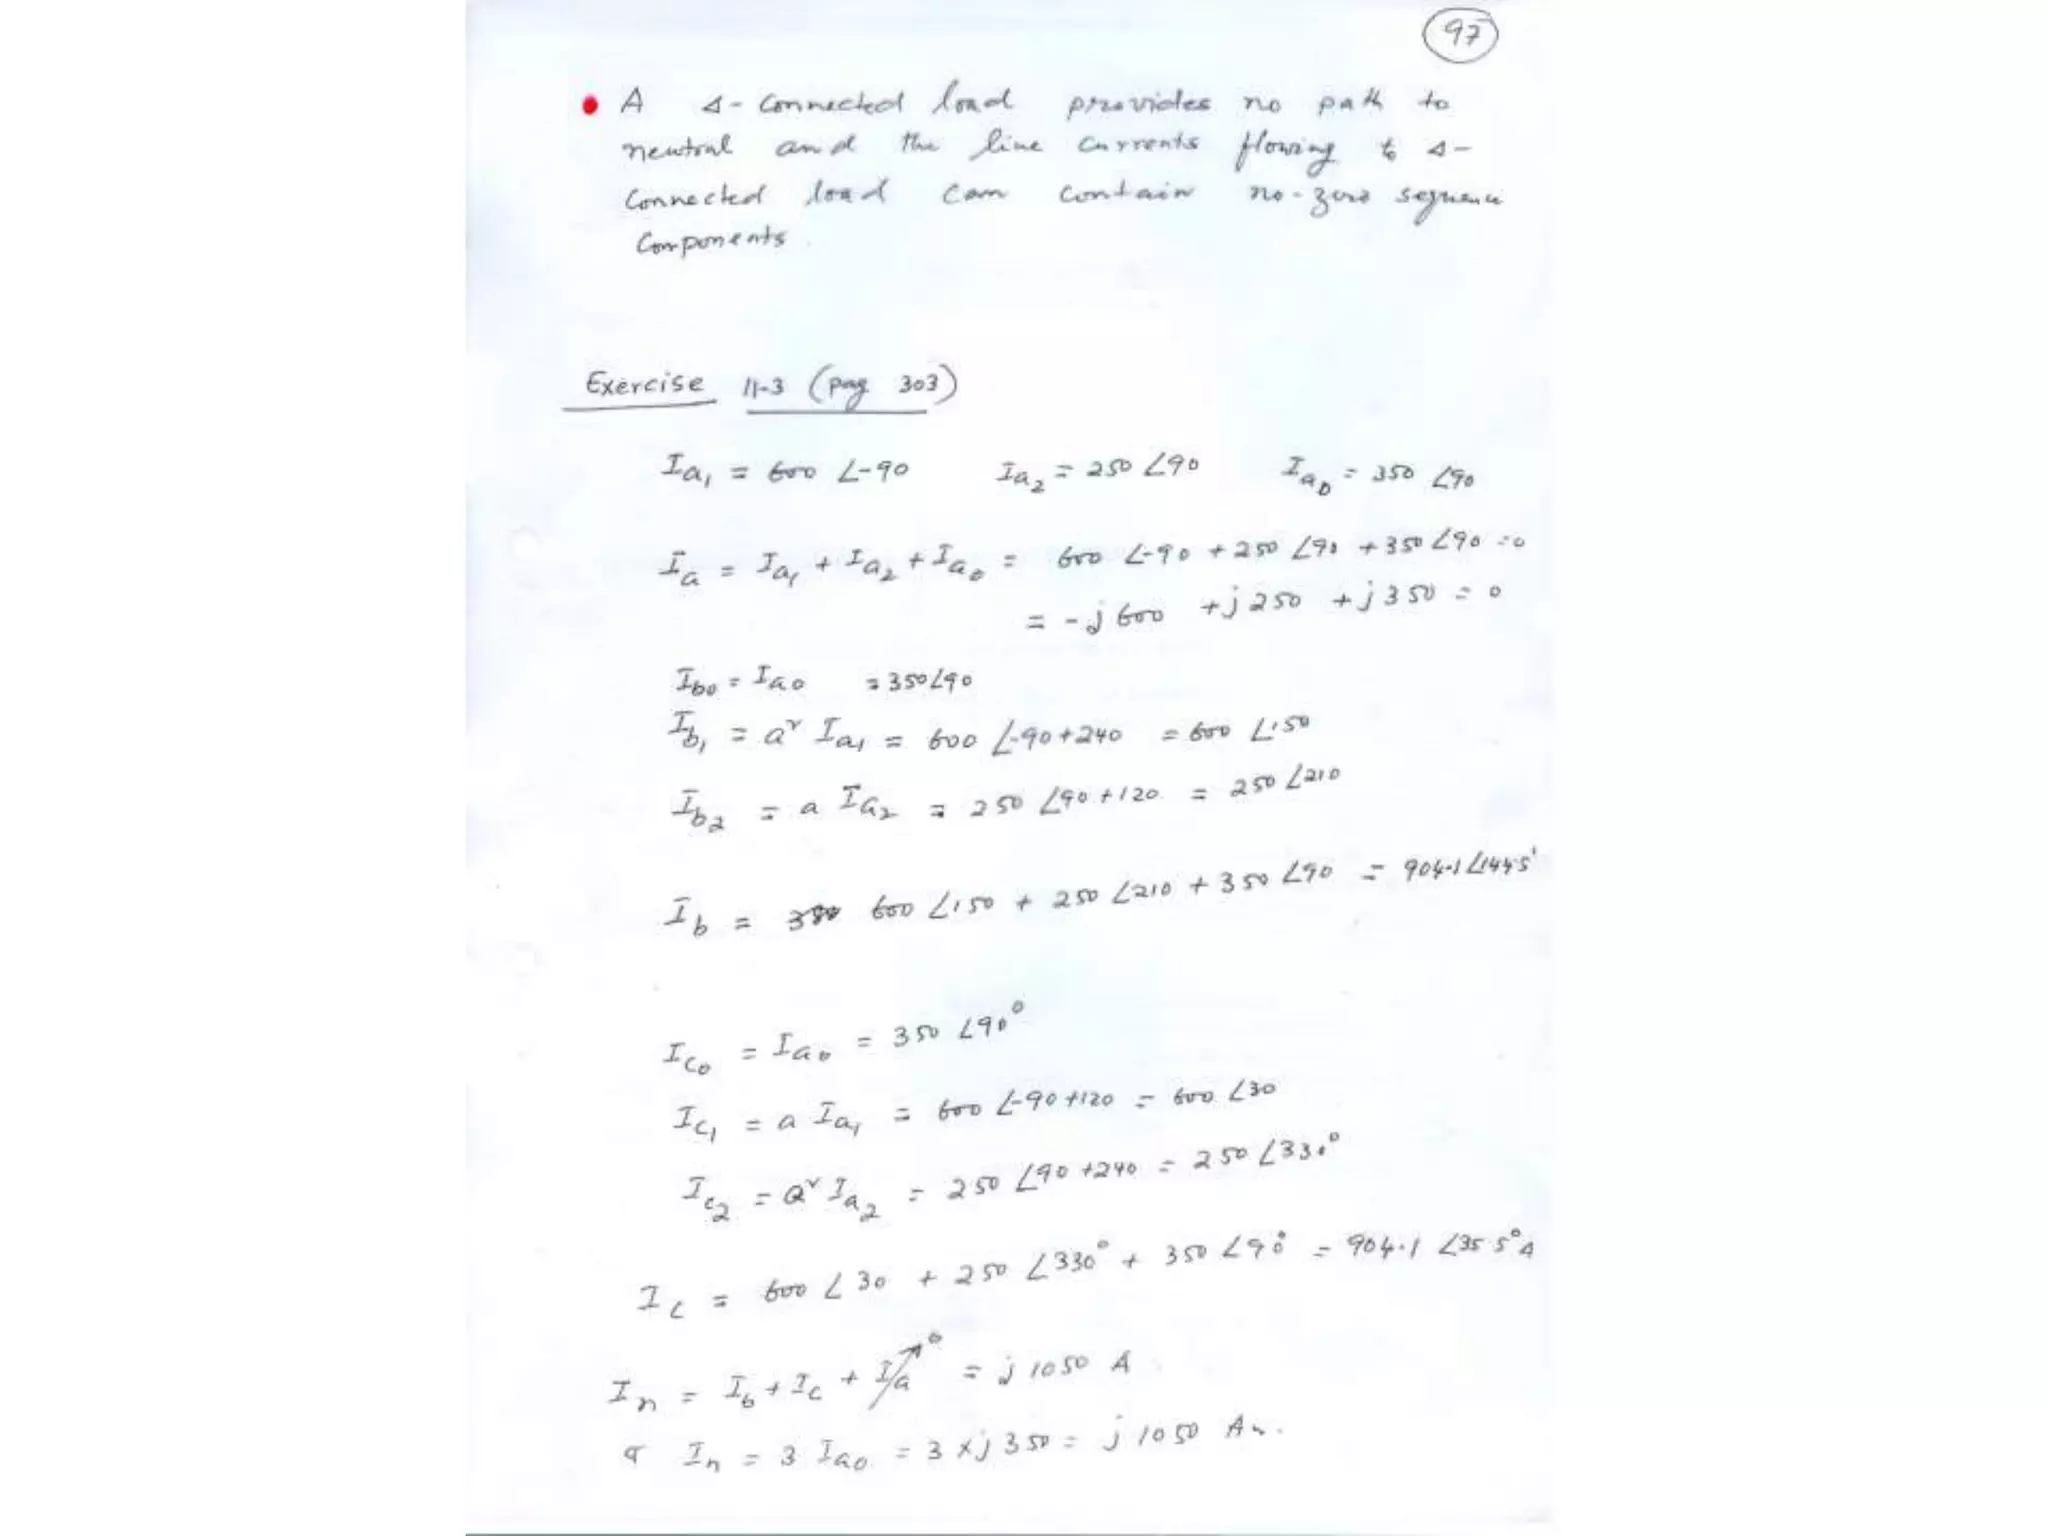 97
• A Δ- Connected load provides no path to
neutral and the line Currents flowing to Δ-
Connected load Can Contain no-zero sequence
Components
Exercise 11-3 (pag 303)
Ia1 = 600 ∠-90 Ia2 = 250 ∠90 Ia0 = 350 ∠90
Ia = Ia1 + Ia2 + Ia0 = 600 ∠-90 + 250 ∠90 + 350 ∠90 = 0
= -j600 + j250 + j350 = 0
Ib0 = Ia0 = 350∠90
Ib1 = a² Ia1 = 600 ∠-90+240 = 600 ∠150
Ib2 = a Ia2 = 250 ∠90+120 = 250 ∠210
Ib = 600 ∠150 + 250 ∠210 + 350 ∠90 = 904.1 ∠144.5
Ic0 = Ia0 = 350 ∠90°
Ic1 = a Ia1 = 600 ∠-90+120 = 600 ∠30
Ic2 = a² Ia2 = 250 ∠90+240 = 250 ∠330°
Ic = 600 ∠30 + 250 ∠330° + 350 ∠90° = 904.1 ∠35.5° A
In = Ib + Ic + Ia 0 = j 1050 A
In = 3 Ia0 = 3 × j350 = j 1050